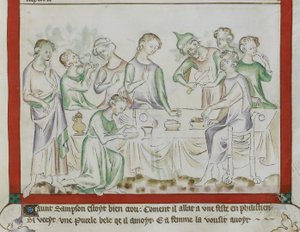 Quant Sampson estoyt bien crou: Coment il allat a une feste en philistien
Si veoyt une Pucele bele qe il amoyt E a femme la vousit avoyr